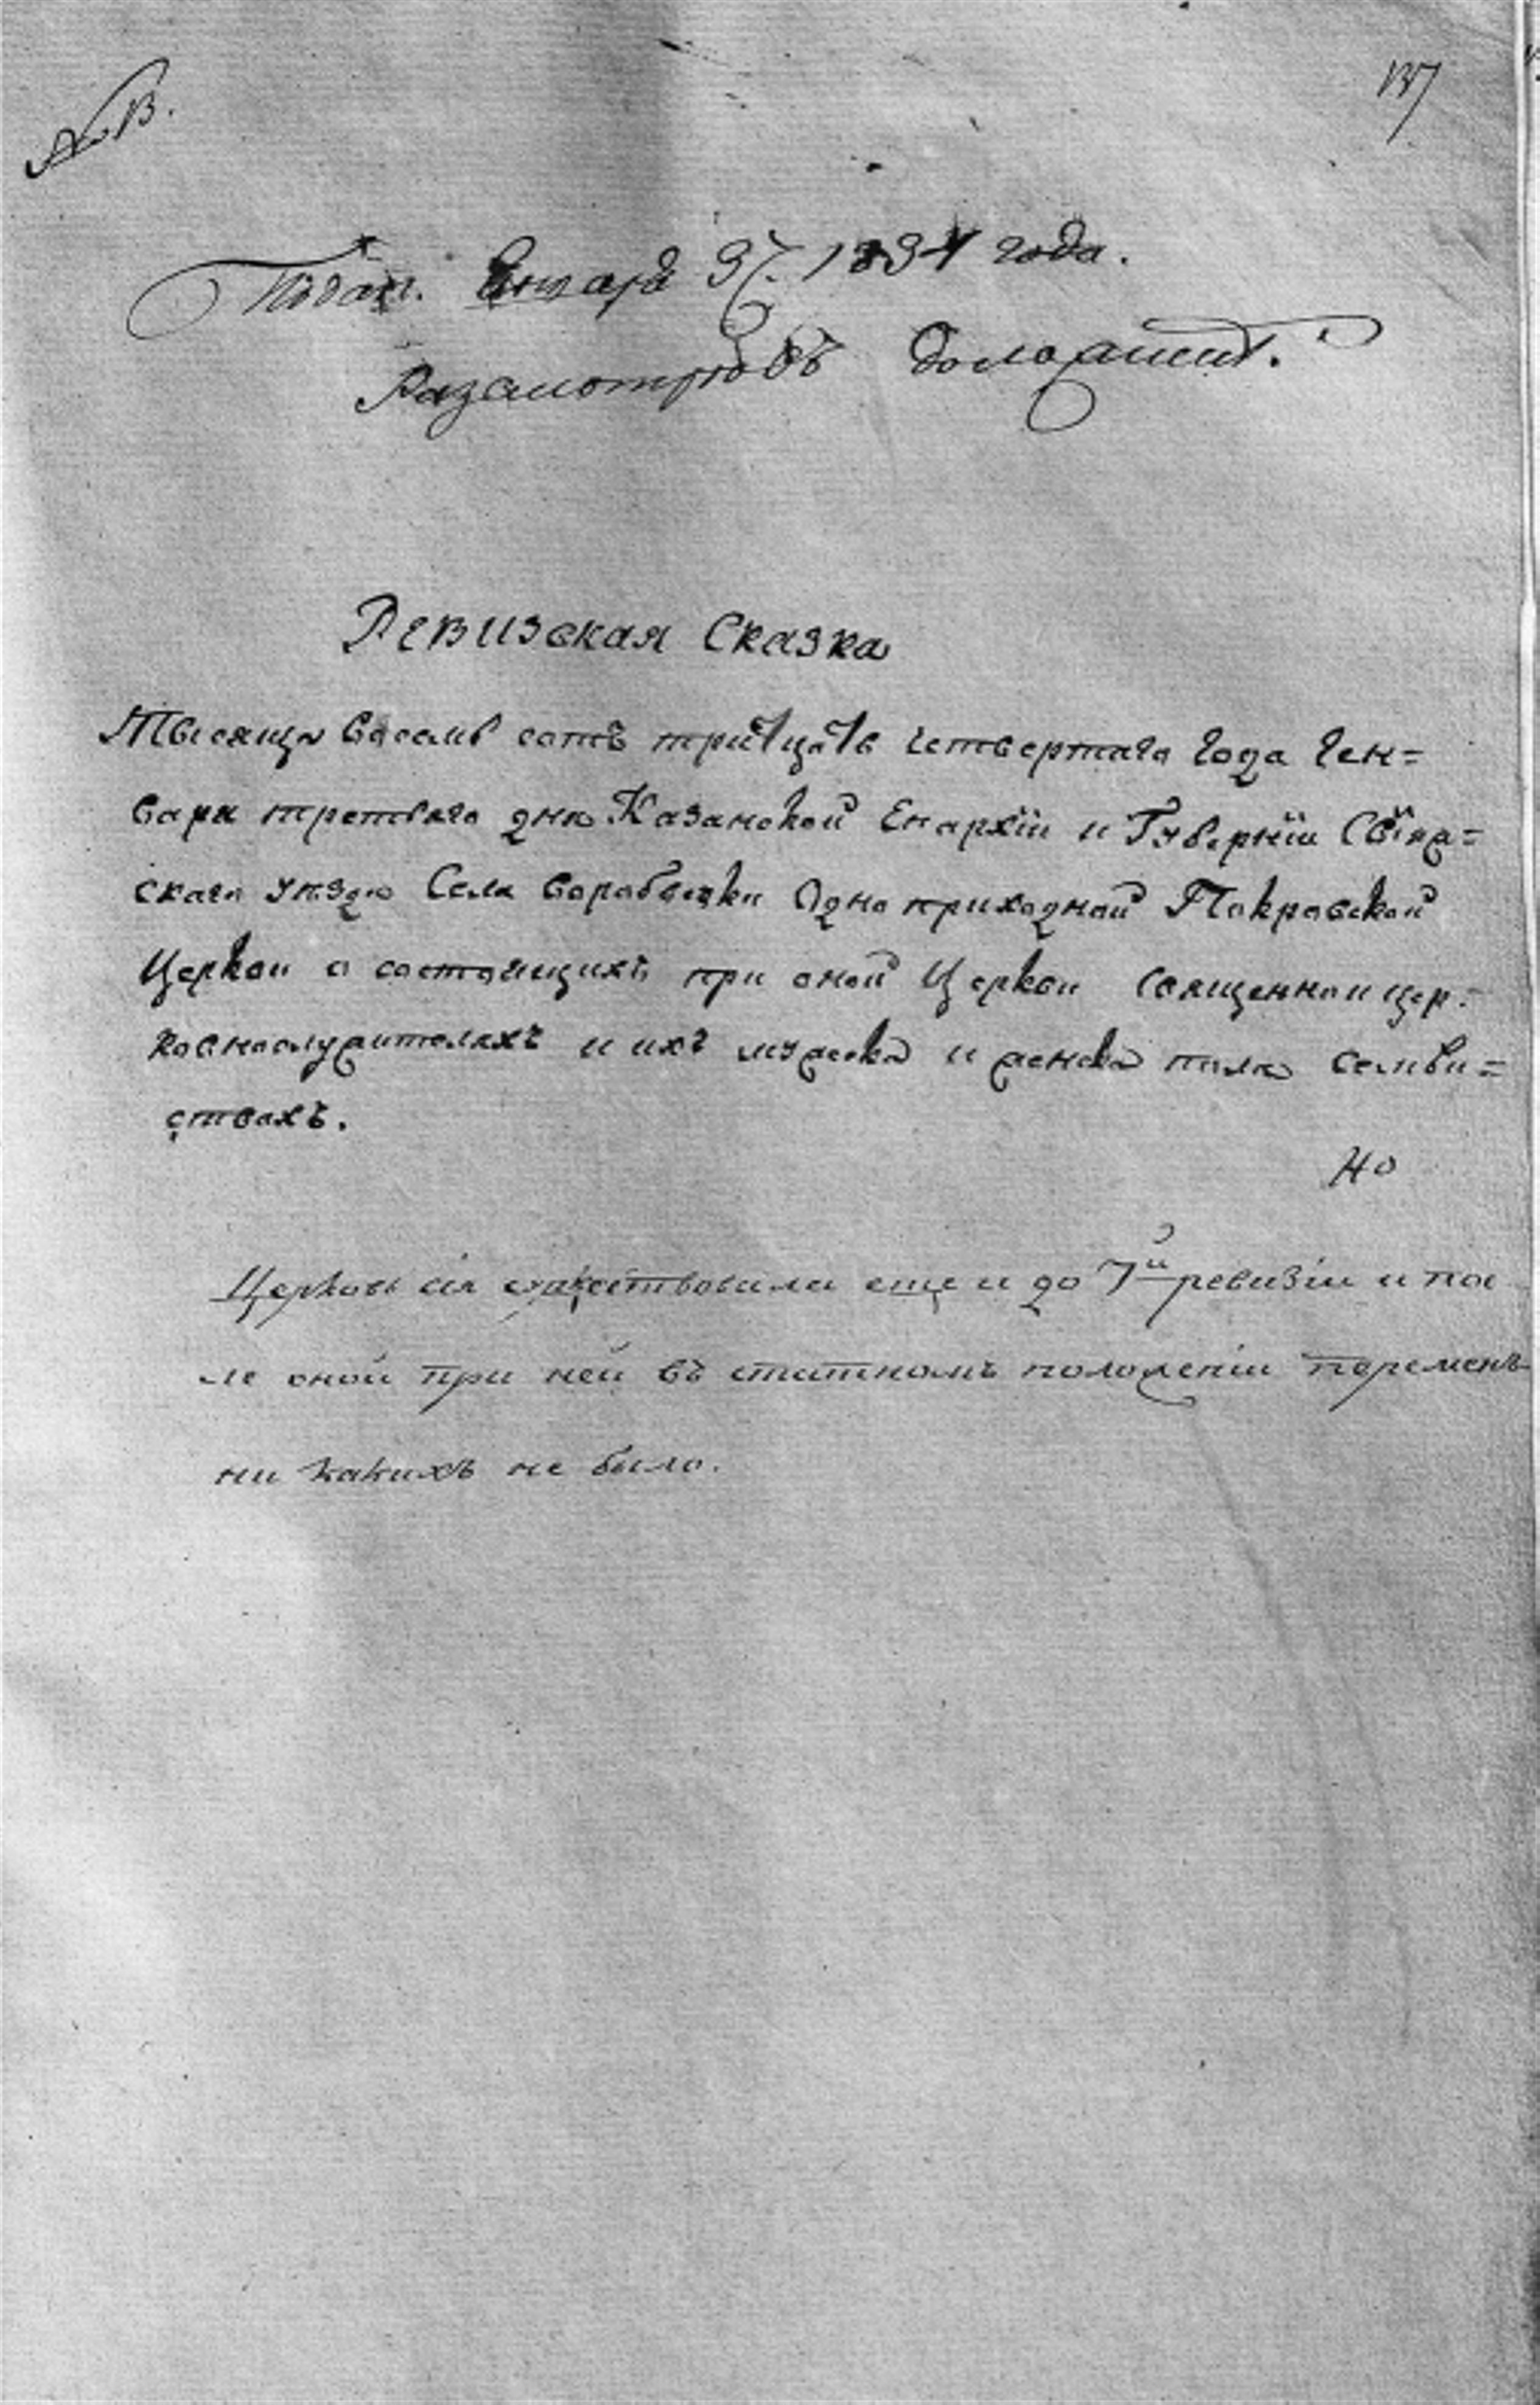 137
Подан. Генваря 9/. 1834 года.
Разсмотревъ доложить.
Ревизская Сказка
Тысяща восемь сотъ тритцать четвертаго года Ген=
варя третьяго дня Казанской Епархїи и Губернїи Свїяж=
скаго уезда Села Воробьевки Одноприходной Покровской
Церкви о состоящихъ при оной Церкви Священно и цер=
ковнослужителяхъ и ихъ мужеска и женска пола семьи=
ствахъ.
Но
Церковь сія существовала еще и до 7й ревизіи и пос
ле оной при ней въ статномъ положеніи переменъ
ни какихъ не было.